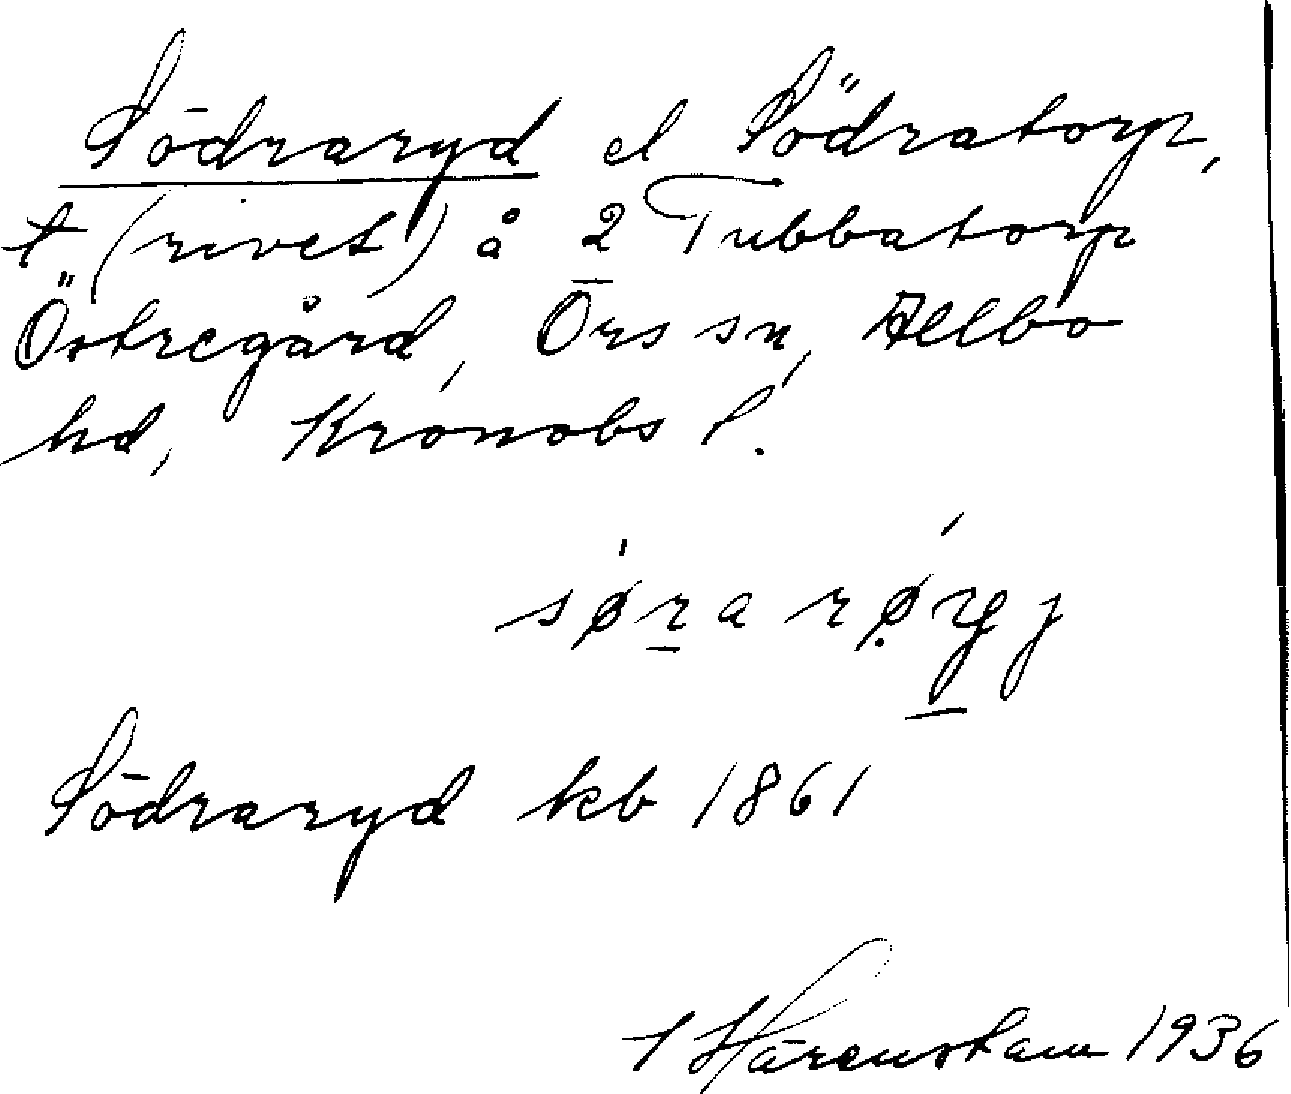 Södraryd el Södratorp,
t (rivet) å 2 Tubbatorp
Östregård, Örs sn, Allbo
hd, Kronobs l.
Södraryd kb 1861
Härenstam 1936